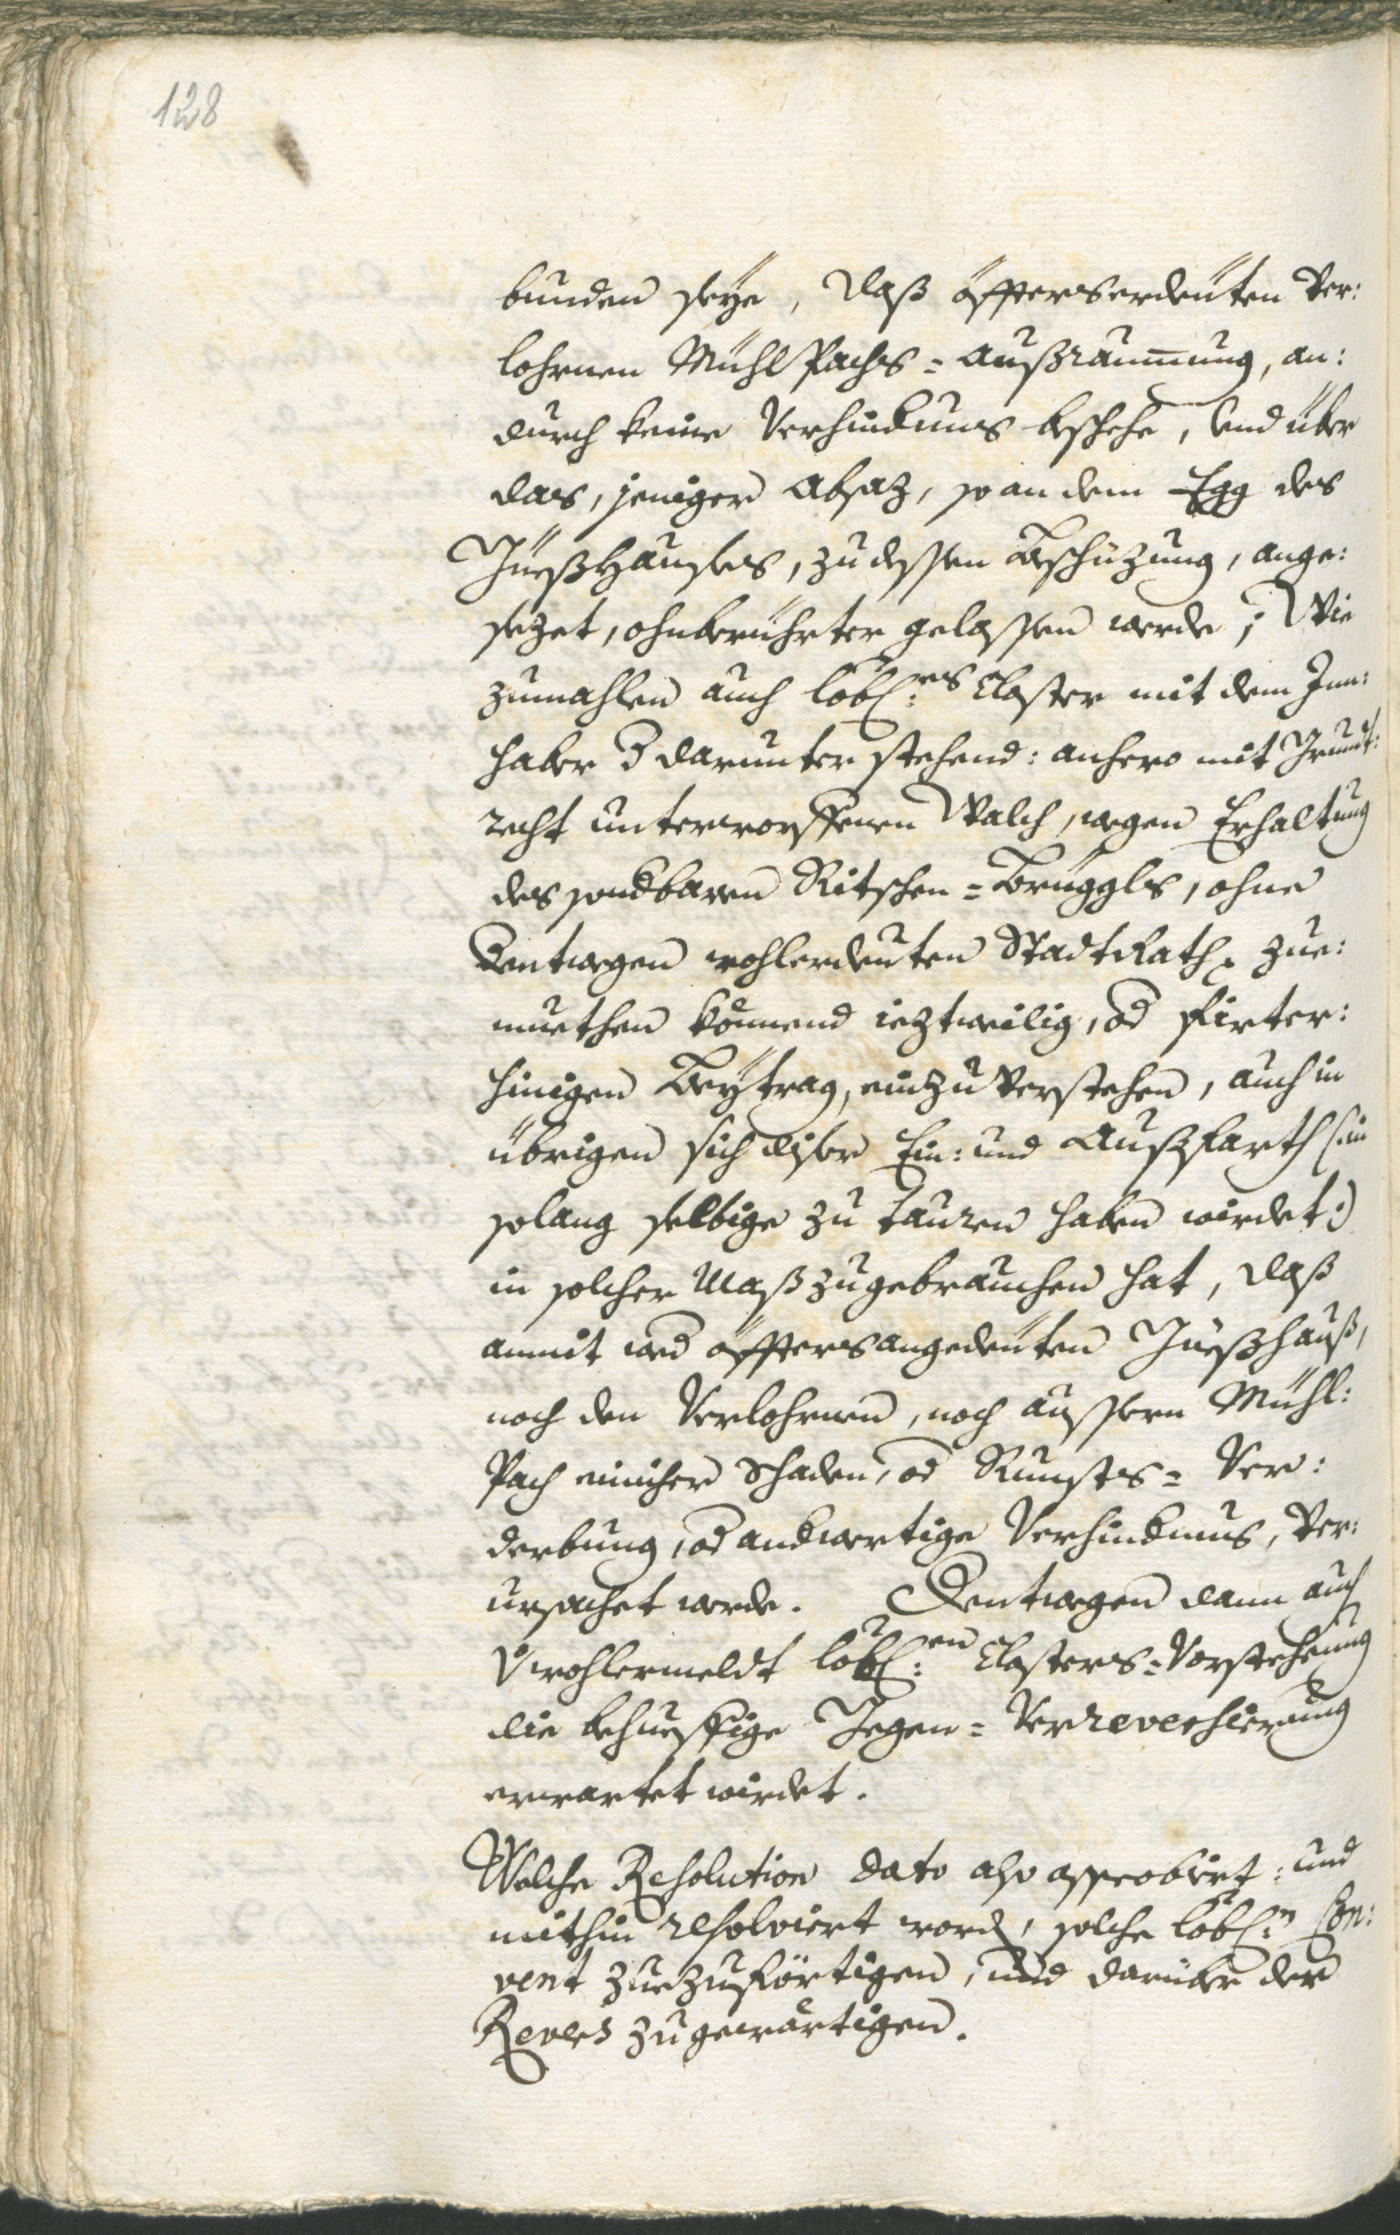 128
bunden seÿe, daß öffterserdeüten ver:
lohrnen Mühl Pachs = Außraumung, an:
durch keine Verhindnus beschehe, und über
das, jeniger Absaz, so an dem Egg des
Güeßhauses, zu dessen Beschüzung, ange:
sezet, ohnberührter gelassen werde; Wie
zumahlen auch löbl:es Closter mit dem Inn:
haber d darunter stehend: anhero mit Grundt:
recht unterworffenen Walch, wegen Erhaltung
des sondbaren Ritschen = Brüggls, ohne
dentwegen wohlerdeuten StadtRath zue:
muethen könnend ieztweilig, od fürter:
hinigen Beÿtrag, einzuverstehen, auch in
übrigen sich diser Ein: und Außfarth (:in
solang selbige zu tauren haben wirdet:)
in solcher Maß zugebrauchen hat, daß
anmit wed öfftersangedeüten Güeßhauß,
noch den Verlohrnen, noch äussern Mühl:
Pach einicher Schaden, od Runsts = Ver:
derbung, od andwertige Verhindnus, ver:
ursachet werde. Dentwegen dann auch
v wohlermeldt löbl:en Closters = Vorstehung
die behueffige Gegen = Verreversierung
erwartet wirdet.
Welche Resolution dato also approbirt: und
mithin resolviert word, solche löbl:n Con:
vent zuezuförtigen, und darüber der
Revers zugewärtigen.